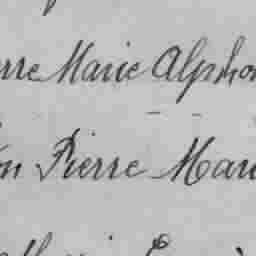 rre Marie Alphon
on Pierre Mari